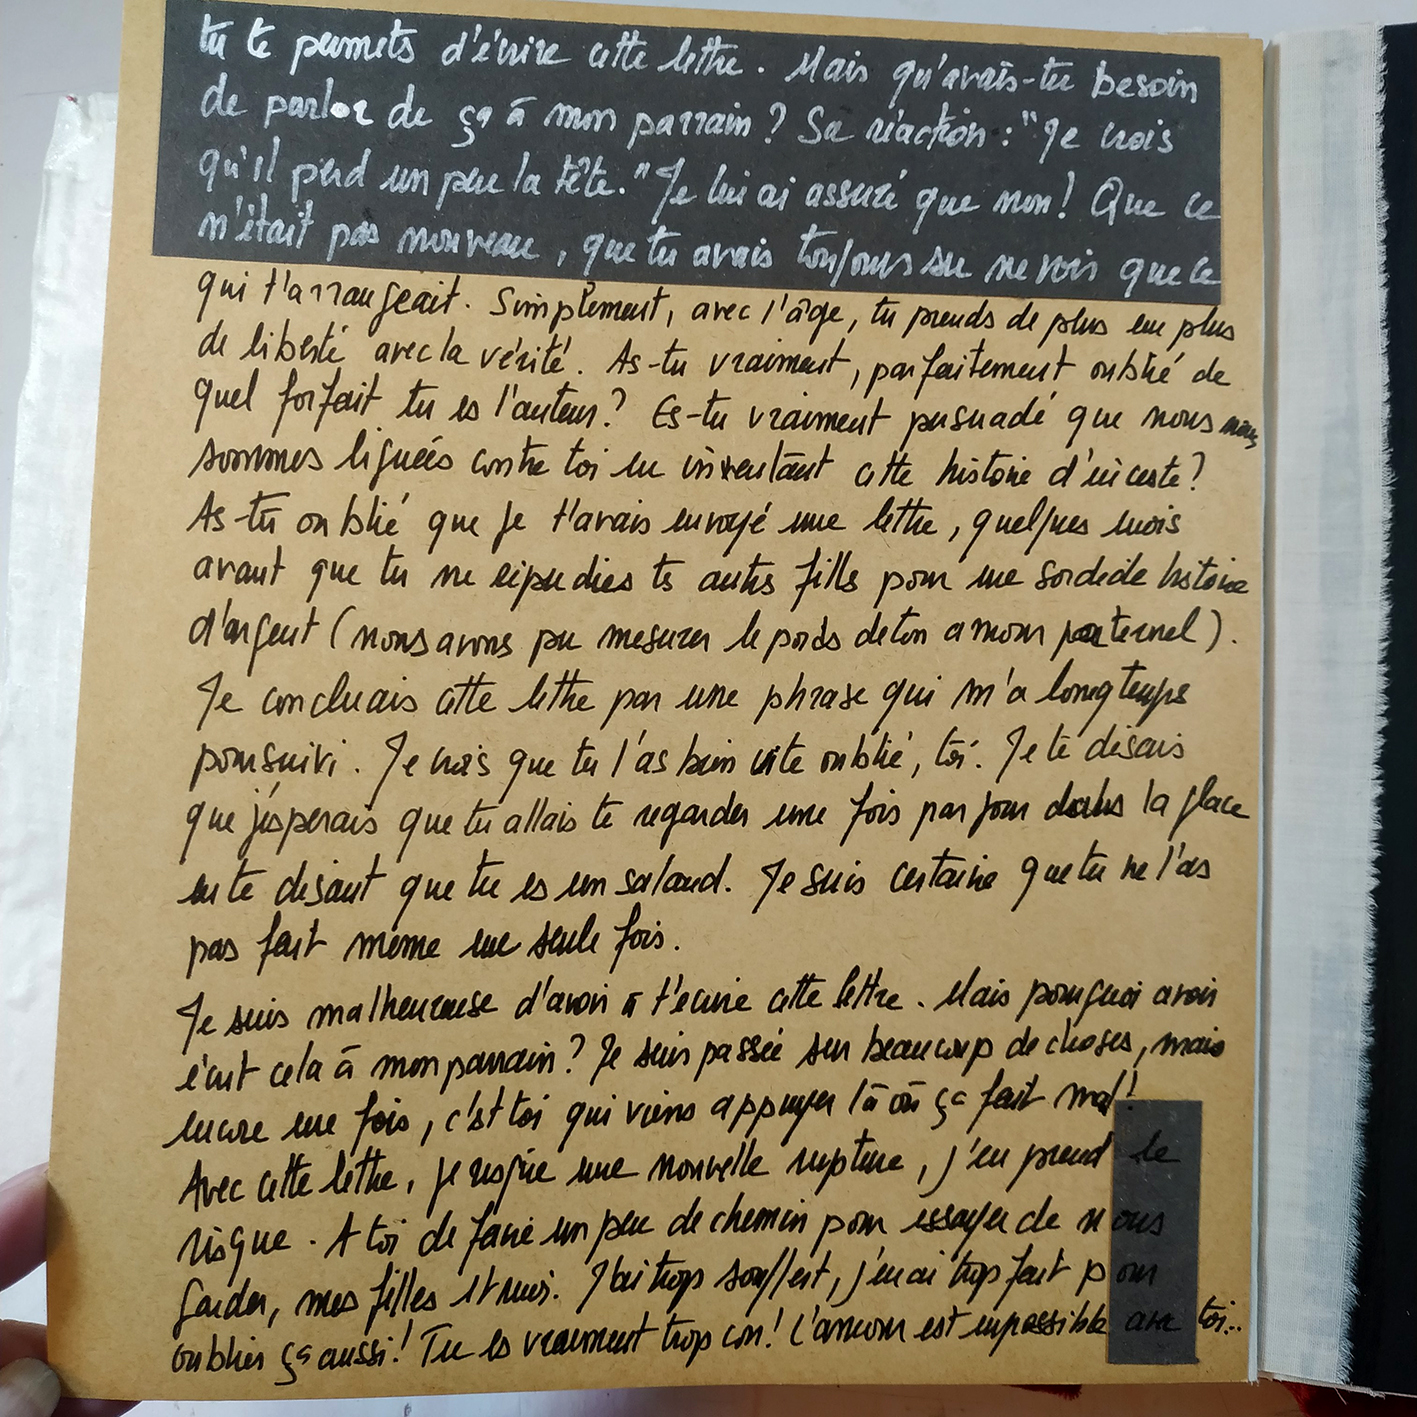 tu te permets d'écrire cette lettre. Mais qu'avais-tu besoin
de parler de ça à mon parrain ? Sa réaction : "Je crois
qu'il perd un peu la tête." Je lui ai assuré que non ! Que ce
n'était pas nouveau, que tu avais toujours su ne voir que ce
qui t'arrangeait. Simplement, avec l'âge, tu prends de plus en plus
de liberté avec la vérité. As-tu vraiment, parfaitement oublié de
quel forfait tu es l'auteur ? Es-tu vraiment persuadé que nous nous
sommes liguées contre toi en inventant cette histoire d'inceste ?
As-tu oublié que je t'avais envoyé une lettre, quelques mois
avant que tu ne répudies tes autres filles pour une sordide histoire
d'argent (nous avons pu mesurer le poids de ton amour paternel).
Je concluais cette lettre par une phrase qui m'a longtemps
poursuivi. Je crois que tu l'as bien vite oublié, toi. Je te disais
que j'espérais que tu allais te regarder une fois par jour dans la glace
en te disant que tu es un salaud. Je suis certaine que tu ne l'as
pas fait même une seule fois.
Je suis malheureuse d'avoir à t'écrire cette lettre. Mais pourquoi avoir
écrit cela à mon parrain ? Je suis passée sur beaucoup de choses, mais
encore une fois, c'est toi qui viens appuyer là où ça fait mal !
Avec cette lettre, je risque une nouvelle rupture, j'en prend le
risque. A toi de faire un peu de chemin pour essayer de nous
garder, mes filles et moi. J'ai trop souffert, j'en ai trop fait pour
oublier ça aussi ! Tu es vraiment trop con ! L'amour est impossible avec toi...